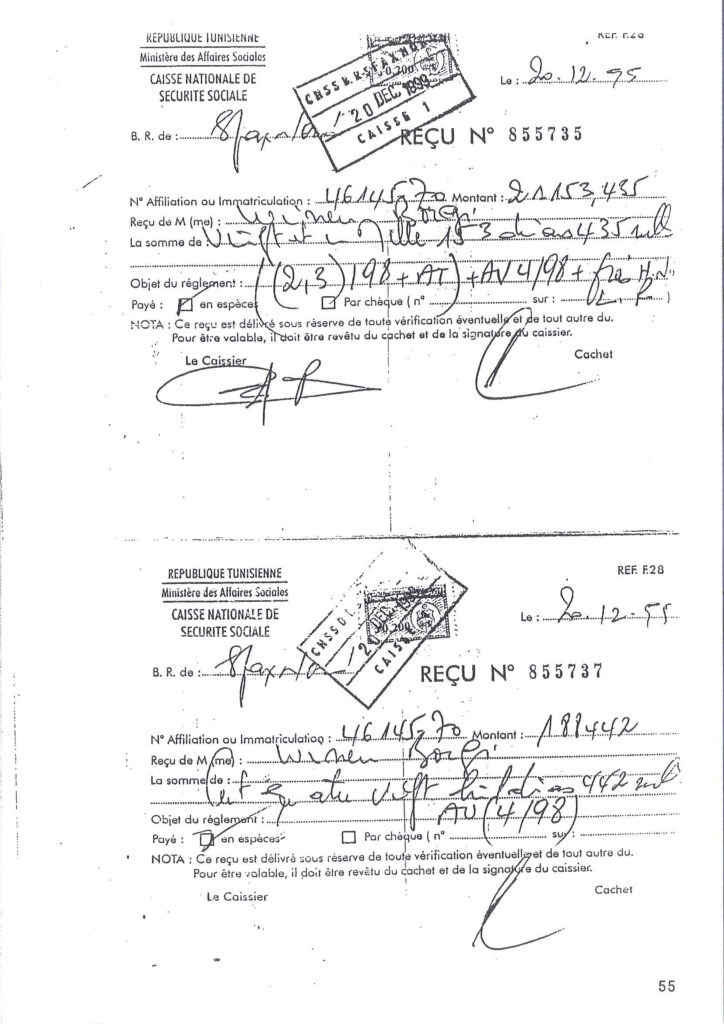 RÉPUBLIQUE TUNISIENNE
REF. F.28
Ministère des Affaires Sociales
CAISSE NATIONALE DE
SECURITE SOCIALE
0,200
CNSS B.R. SFAX NORD
20 DEC. 1999
CAISSE 1
Le : 20.12.95
B. R. de : Sfax
REÇU N° 855735
N° Affiliation ou Immatriculation : 46145-70 Montant : 21153,435
Reçu de M (me) : Borgi
La somme de : Vingt et un Mille 153 dinars 435 mil
Objet du réglement : ((2,3)/98 + AT) + AV 4/98 + frais
Payé : en espèces Par chèque ( n° sur : )
NOTA : Ce reçu est délivré sous réserve de toute vérification éventuelle et de tout autre du.
Pour être valable, il doit être revêtu du cachet et de la signature du caissier.
Le Caissier Cachet
REF. F.28
REPUBLIQUE TUNISIENNE
Ministère des Affaires Sociales
CAISSE NATIONALE DE
SECURITE SOCIALE
0,200
CNSS
20 DEC.
CAISSE
Le : 20.12.99
B. R. de : Sfax
REÇU N° 855737
N° Affiliation ou Immatriculation : 46145-70 Montant : 188442
Reçu de M (me) : Borgi
La somme de : Cent quatre vingt huit dinars 442 mil
Objet du réglement : AV (4/98)
Payé : en espèces Par chèque ( n° sur : )
NOTA : Ce reçu est délivré sous réserve de toute vérification éventuelle et de tout autre du.
Pour être valable, il doit être revêtu du cachet et de la signature du caissier.
Le Caissier Cachet
55